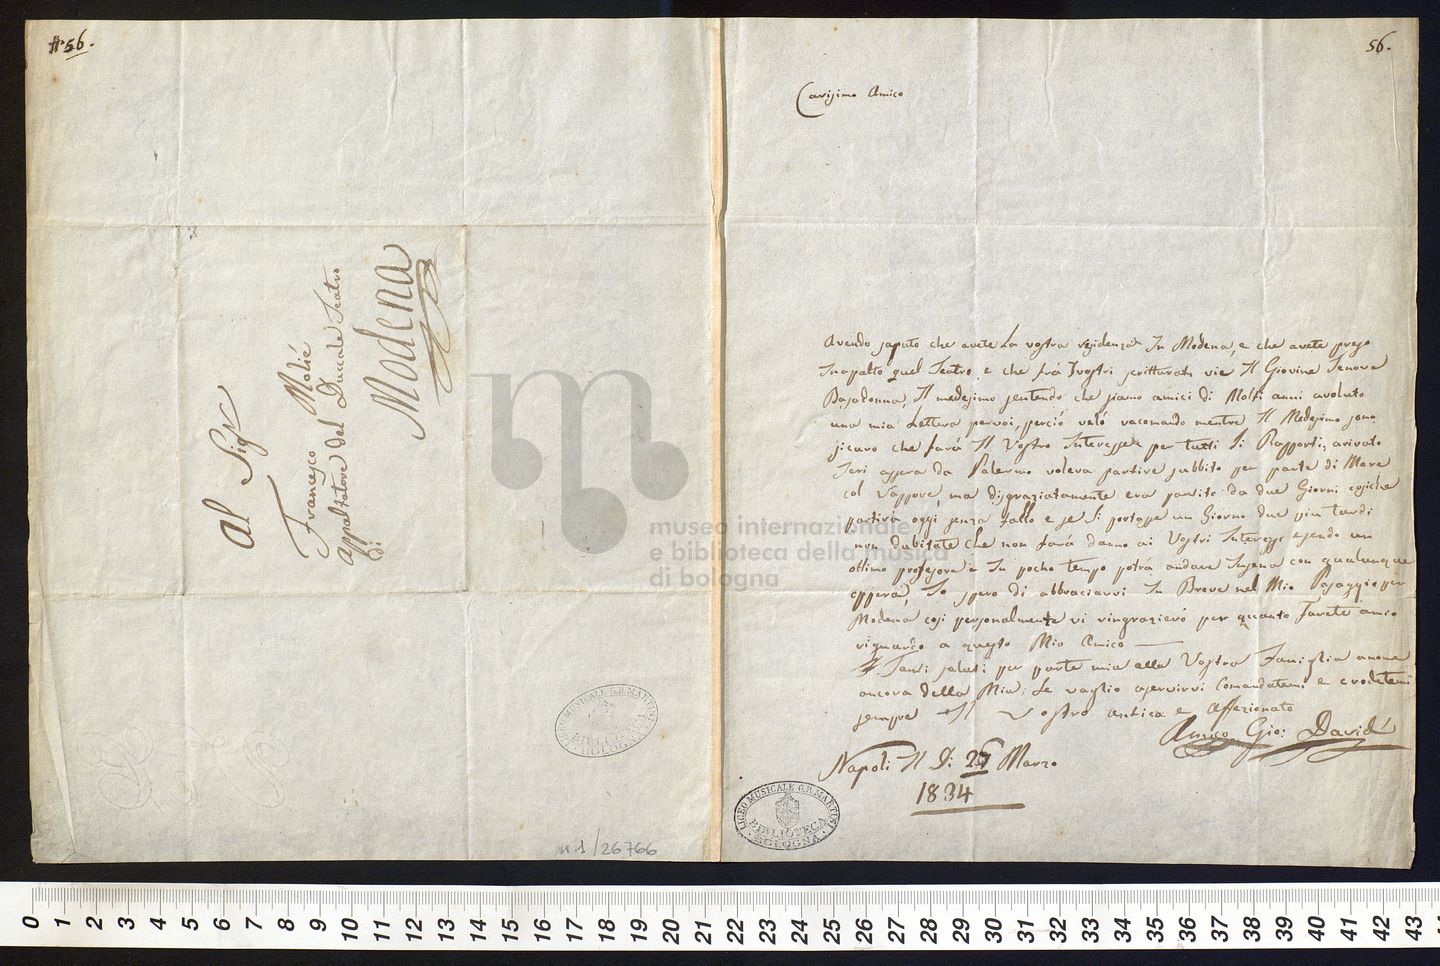 #56.
Al Sigr
Francesco Molié
appaltatore del Duccale Teatro
di
Modena
56.
Carisimo Amico
Avendo saputo che avete La vostra residenza In Modena, e che avete preso
Inapalto quel Teatro e che frá Ivostri scritturati vié Il Giovine Tenore
Basadonna, Il medesimo sentendo che siamo amici di Molti anni avoluto
una mia Lettera pervoi, perció veló racomando mentre Il Medesimo sono
sicuro che fará Il Vostro Interesse per tutti Li Rapporti, arivato
Ieri assera da Palermo voleva partire subbito per parte di Mare
col Vappore, ma disgraziatamente era partito da due Giorni cosiché
partirá oggi senza fallo e se si portasse un Giorno due piu tardi
non dubitate che non fará danno ai Vostri Interessi essendo un
ottimo professore e In pocho tempo potrá andare Insena con qualunque
oppera, Io spero di abbraciarvi In Breve nel Mio Pasaggio per
Modena cosi personalmente vi ringrazieró per quanto Farete amio
riguardo a questo Mio Amico
Tanti saluti per parte mia alla Vostra Famiglia anome
ancora della Mia: Le vaglio aservirvi Comandatemi e credetemi
sempre Il Vostro antico e Affezionato
Amico Gio: David
Napoli Il Di Marzo
1834
LICEO MUSICALE G.B. MARTINI
BIBLIOTECA
BOLOGNA
LICEO MUSICALE G.B. MARTINI
BIBLIOTECA
BOLOGNA
n 1/26766
museo internazionale
e biblioteca della musica
di bologna
0 1 2 3 4 5 6 7 8 9 10 11 12 13 14 15 16 17 18 19 20 21 22 23 24 25 26 27 28 29 30 31 32 33 34 35 36 37 38 39 40 41 42 43